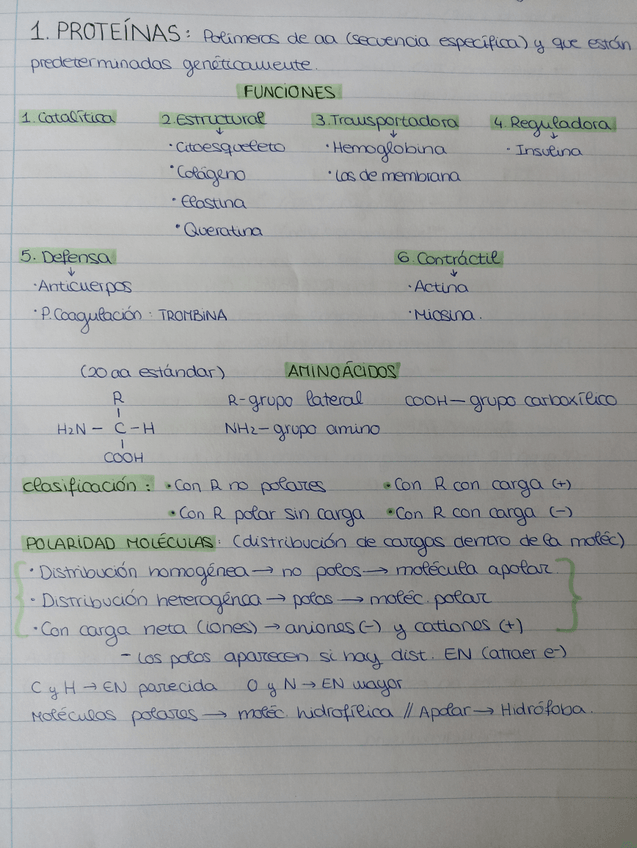 1. PROTEÍNAS: Polímeros de aa (secuencia específica) y que están
predeterminados genéticamente.
FUNCIONES
1. Catalítica 2. Estructural 3. Transportadora 4. Reguladora
↓ ↓ ↓
· Citoesqueleto · Hemoglobina · Insulina
· Colágeno · Las de membrana
· Elastina
· Queratina
5. Defensa 6. Contráctil
↓ ↓
· Anticuerpos · Actina
· P. Coagulación : TROMBINA · Miosina.
(20 aa estándar) AMINOÁCIDOS
R R-grupo lateral COOH — grupo carboxílico
H₂N – C – H NH₂ – grupo amino
COOH
Clasificación : • Con R no polares • Con R con carga (+)
• Con R polar sin carga • Con R con carga (–)
POLARIDAD MOLÉCULAS: (distribución de cargas dentro de la moléc)
· Distribución homogénea → no polos → molécula apolar
· Distribución heterogénea → polos → moléc. polar
· Con carga neta (iones) → aniones (–) y cationes (+)
– Los polos aparecen si hay dist. EN (atraer e-)
C y H → EN parecida O y N → EN mayor
Moléculas polares → moléc hidrofílica // Apolar → Hidrófoba.